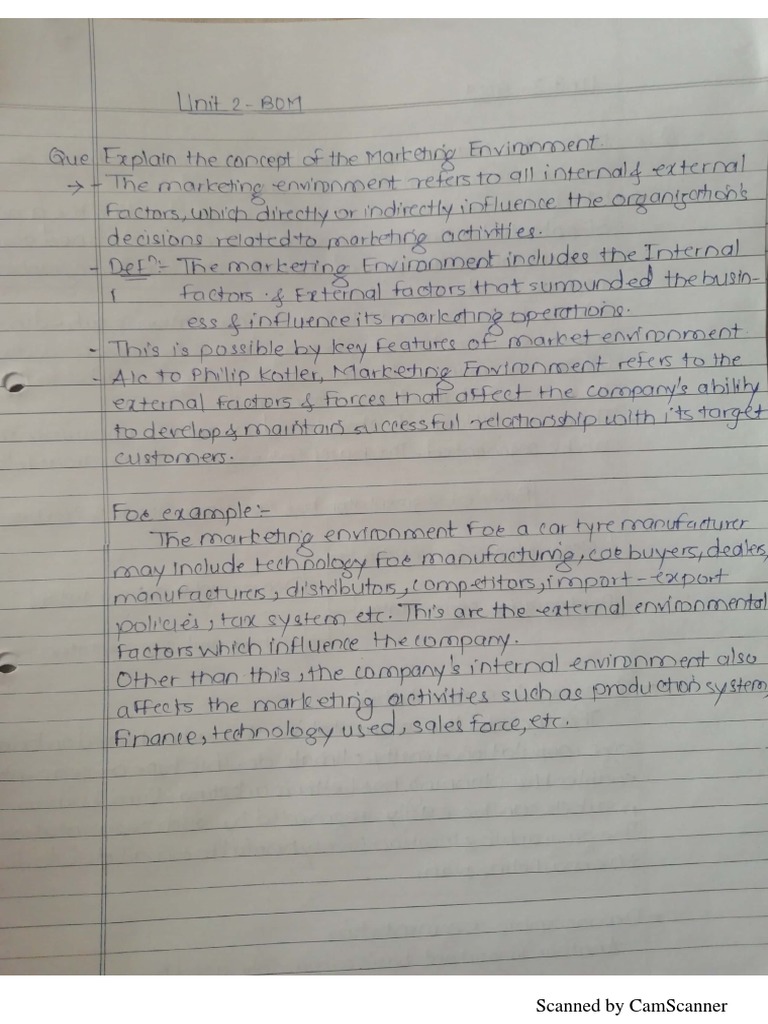 Unit 2 - BOM
Que Explain the concept of the Marketing Environment.
→ - The marketing environment refers to all internal & external
factors, which directly or indirectly influence the organization's
decisions related to marketing activities.
- Defⁿ:- The marketing Environment includes the Internal
factors & External factors that surrounded the busin-
ess & influence its marketing operations.
- This is possible by key features of market environment
- A/c to Philip Kotler, Marketing Environment refers to the
external factors & forces that affect the company's ability
to develop & maintain successful relationship with its target
customers.
For example:-
The marketing environment for a car tyre manufacturer
may include technology for manufacturing, car buyers, dealers,
manufacturers, distributors, competitors, import-export
policies, tax system etc. This are the external environmental
factors which influence the company.
Other than this, the company's internal environment also
affects the marketing activities such as production system,
finance, technology used, sales force, etc.
Scanned by CamScanner